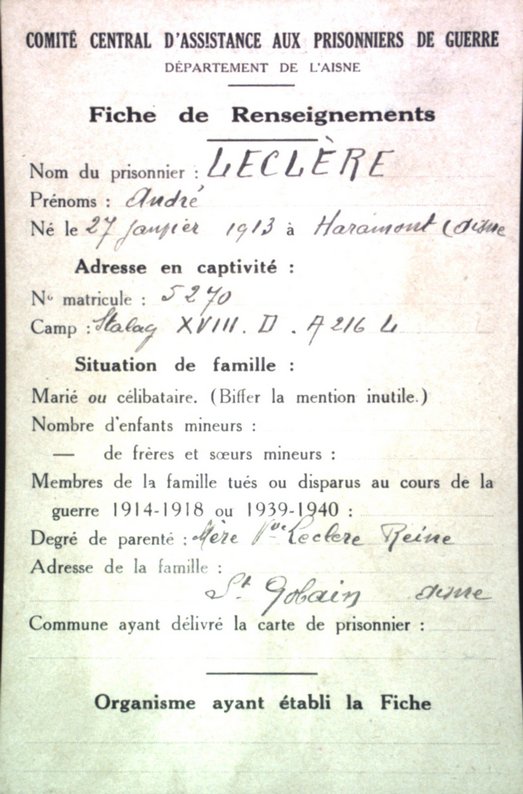 COMITÉ CENTRAL D'ASSISTANCE AUX PRISONNIERS DE GUERRE
DÉPARTEMENT DE L'AISNE
Fiche de Renseignements
Nom du prisonnier : LECLÈRE
Prénoms : André
Né le 27 Janvier 1913 à Haramont (Aisne
Adresse en captivité :
No matricule : 5270
Camp : Stalag XVIII. D. A 216 L
Situation de famille :
Marié ou célibataire. (Biffer la mention inutile.)
Nombre d'enfants mineurs :
— de frères et sœurs mineurs :
Membres de la famille tués ou disparus au cours de la
guerre 1914-1918 ou 1939-1940 :
Degré de parenté : Mère Vve Leclere Reine
Adresse de la famille :
St Gobain Aisne
Commune ayant délivré la carte de prisonnier :
Organisme ayant établi la Fiche